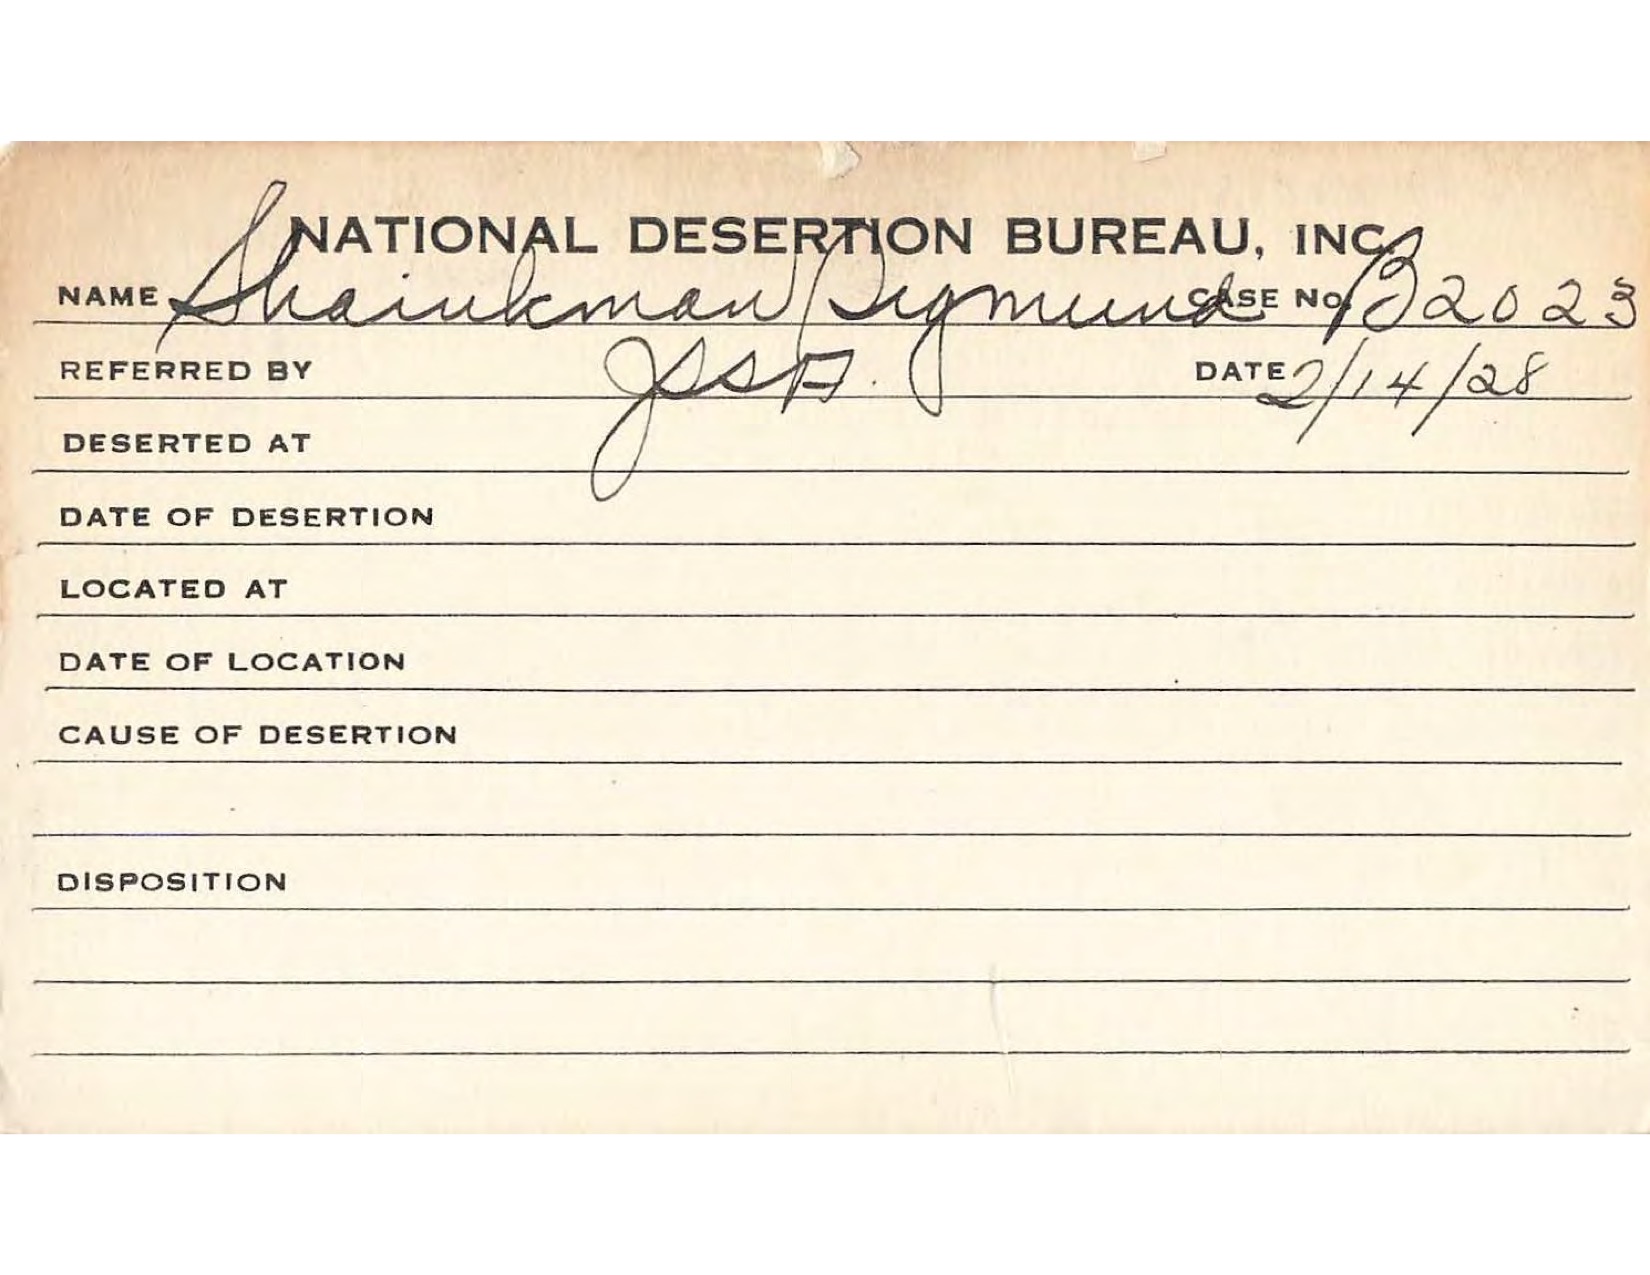 NATIONAL DESERTION BUREAU, INC.
NAME Shainkman Sigmund CASE NO. B2023
REFERRED BY JSSA. DATE 2/14/28
DESERTED AT
DATE OF DESERTION
LOCATED AT
DATE OF LOCATION
CAUSE OF DESERTION
DISPOSITION